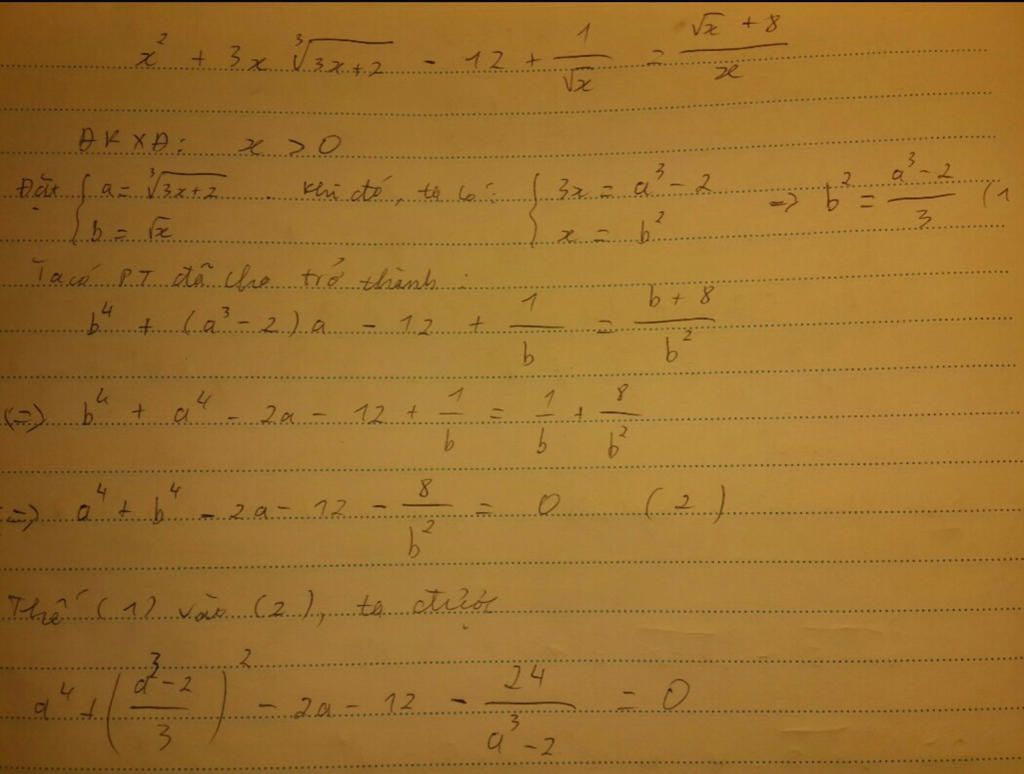 x² + 3x ∛(3x+2) - 12 + 1/√x = (√x + 8)/x
ĐKXĐ: x > 0
Đặt { a = ∛(3x+2) ; b = √x . Khi đó, ta có: { 3x = a³ - 2 ; x = b² => b² = (a³ - 2)/3 (1
Ta có PT đã cho trở thành:
b⁴ + (a³ - 2)a - 12 + 1/b = (b + 8)/b²
(=) b⁴ + a⁴ - 2a - 12 + 1/b = 1/b + 8/b²
(=) a⁴ + b⁴ - 2a - 12 - 8/b² = 0 (2)
Thế (1) vào (2), ta được
a⁴ + ((a³ - 2)/3)² - 2a - 12 - 24/(a³ - 2) = 0